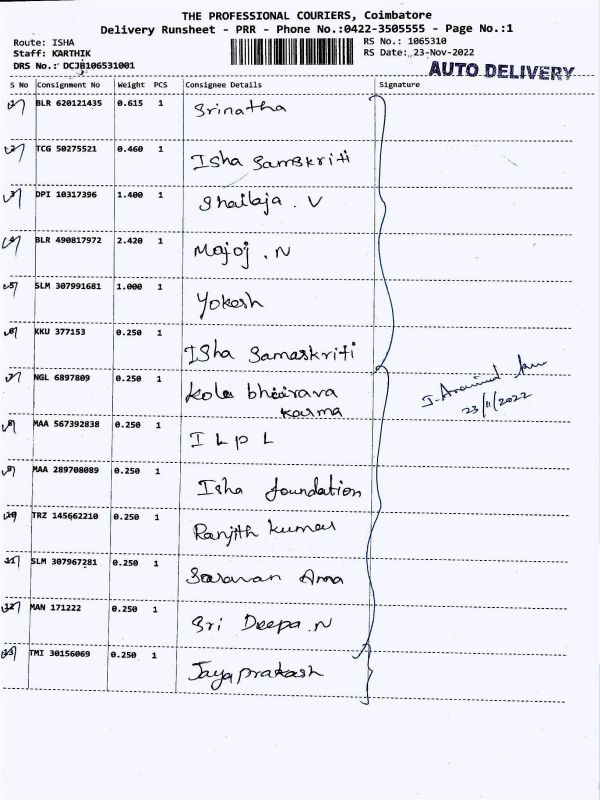 THE PROFESSIONAL COURIERS, Coimbatore
Delivery Runsheet - PRR - Phone No.:0422-3505555 - Page No.:1
Route: ISHA RS No.: 1065310
Staff: KARTHIK RS Date: 23-Nov-2022
DRS No.: DCJB106531001 AUTO DELIVERY
S No Consignment No Weight PCS Consignee Details Signature
1 BLR 620121435 0.615 1 Srinatha
2 TCG 50275521 0.460 1 Isha Samskriti
3 DPI 10317396 1.400 1 Shailaja . V
4 BLR 490817972 2.420 1 Majoj . N
5 SLM 307991681 1.000 1 Yokesh
6 KKU 377153 0.250 1 Isha Samaskriti
7 NGL 6897809 0.250 1 Kola bhairava
karma
8 MAA 567392838 0.250 1 I L P L
9 MAA 289708089 0.250 1 Isha foundation
10 TRZ 145662210 0.250 1 Ranjith Kumar
11 SLM 307967281 0.250 1 Saravan Anna
12 MAN 171222 0.250 1 Sri Deepa . N
13 TMI 30156069 0.250 1 Jayaprakash
23/11/2022